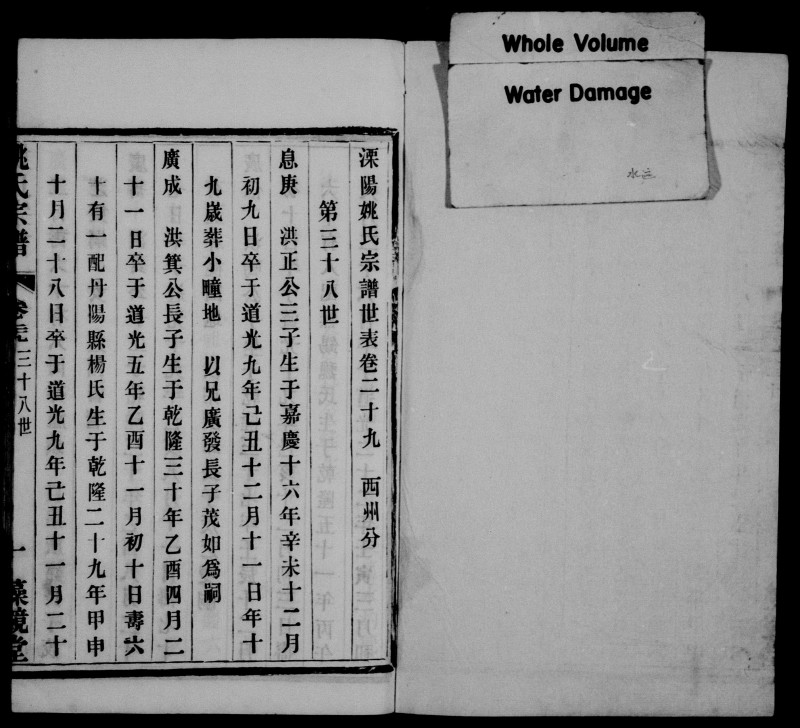 Whole Volume
Water Damage
溧陽姚氏宗譜世表卷二十九 西州分
第三十八世
息庚 洪正公三子生于嘉慶十六年辛未十二月
初九日卒于道光九年己丑十二月十一日年十
九歲葬小疃地 以兄廣發長子茂如為嗣
廣成 洪箕公長子生于乾隆三十年乙酉四月二
十一日卒于道光五年乙酉十一月初十日壽六
十有一配丹陽縣楊氏生于乾隆二十九年甲申
十月二十八日卒于道光九年己丑十一月二十
姚氏宗譜 卷 三十八世 一 藻鏡堂